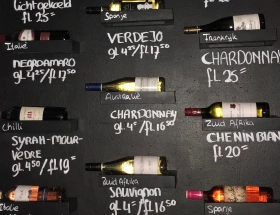 lichtgekoeld
fl 25=
Italië
NEGROAMARO
gl 4²⁵/fl 17⁵⁰
Chili
SYRAH-MOUR-
VÈDRE
gl 4⁵⁰/fl 19=
Italië
Spanje
VERDEJO
gl 4²⁵/fl 17⁵⁰
Australië
CHARDONNAY
gl 4=/fl 16⁵⁰
Zuid Afrika
SAUVIGNON
gl 4=/fl 16⁵⁰
Frankrijk
CHARDONNA
fl 25=
Zuid Afrika
CHENIN BLAN
fl 20=
Spanje